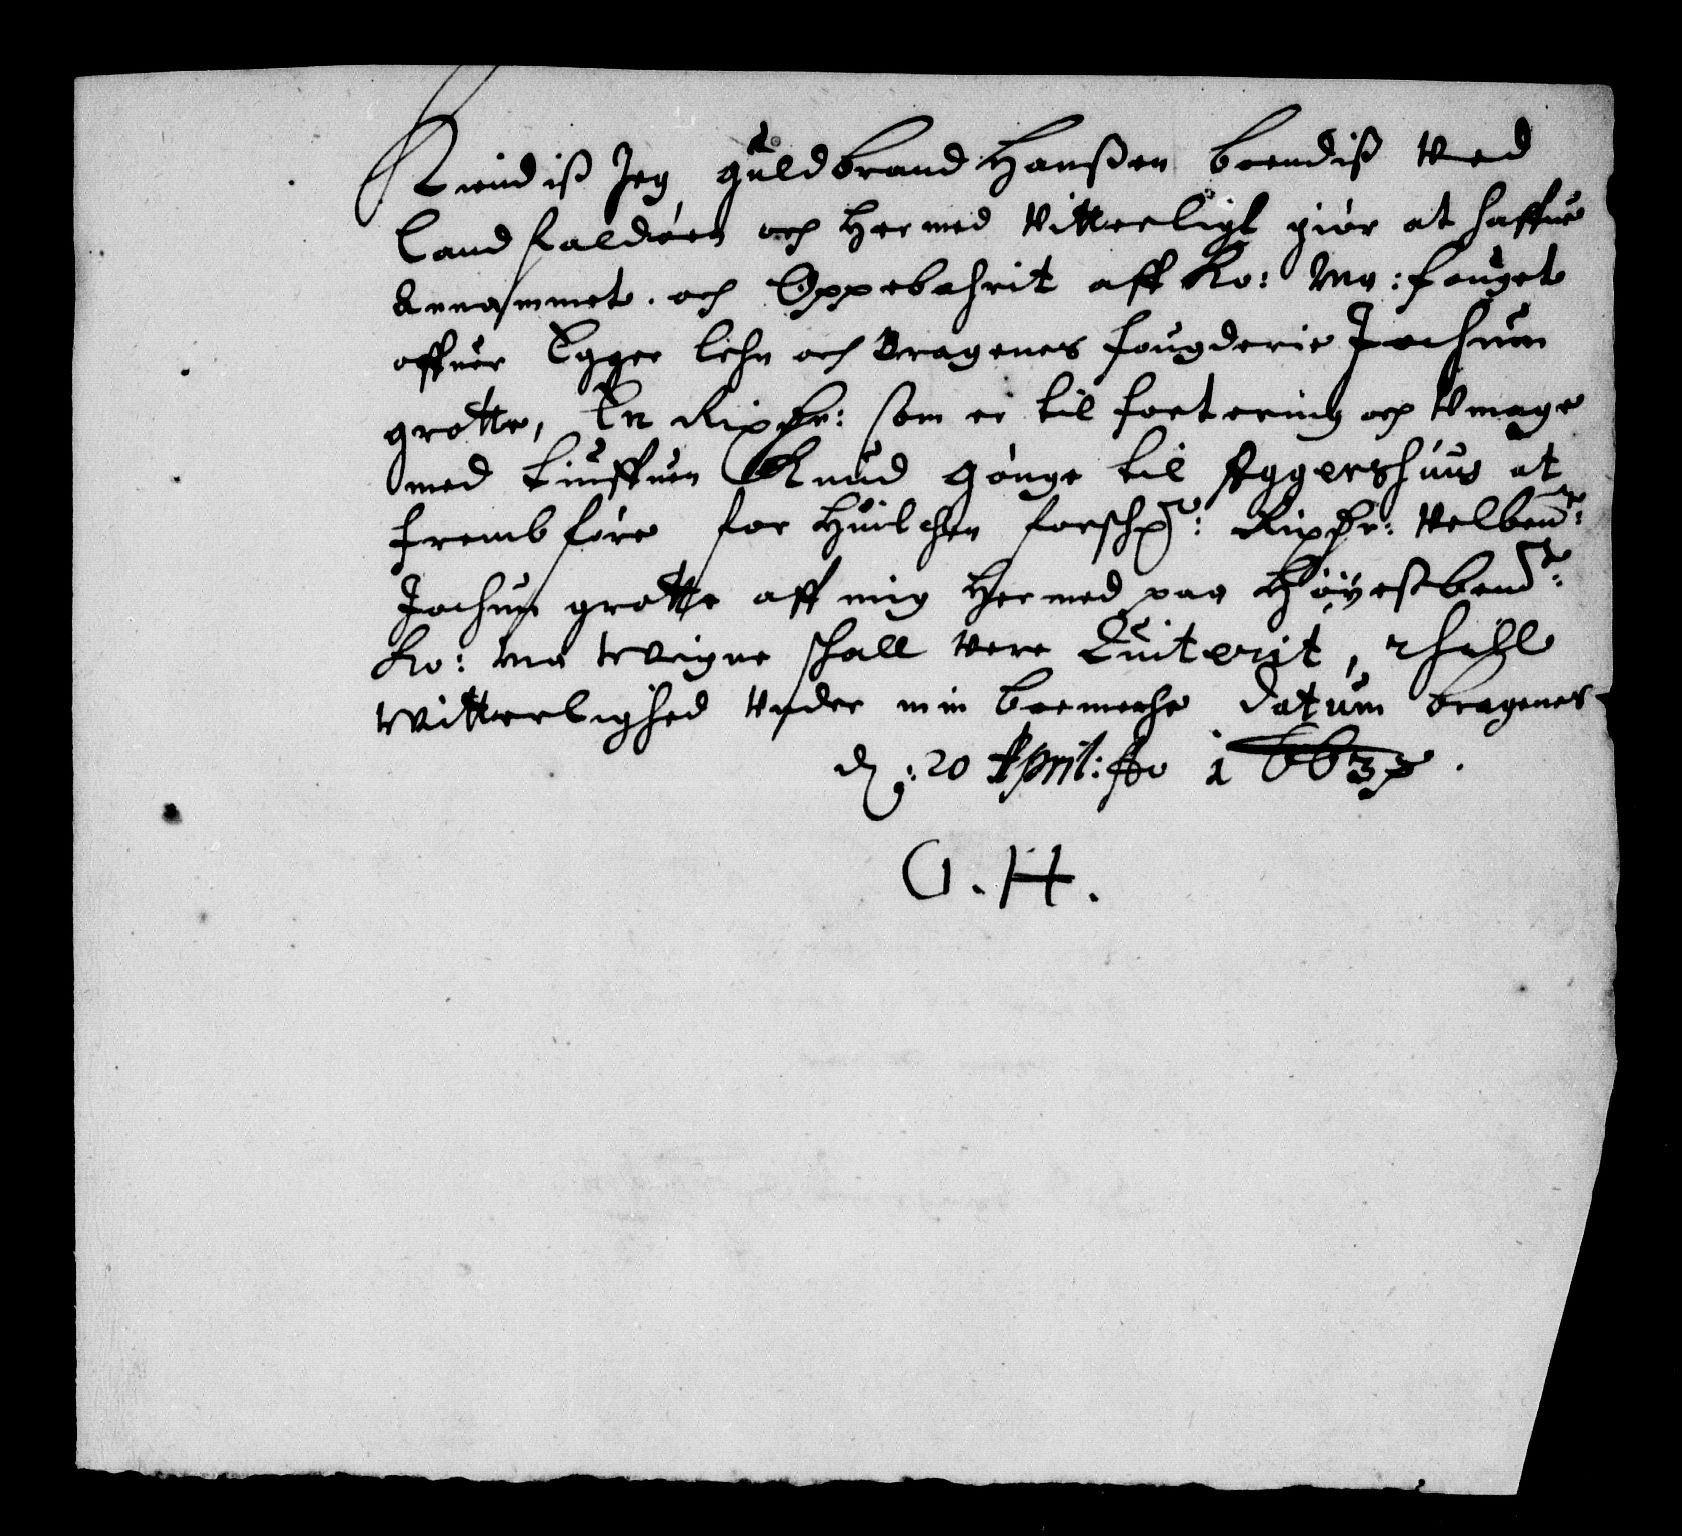 Kiendiß Jeg Guldbrand Hanßen boendiß ved
Landfaldöen och Hermed Vitterligt giör at haffue
Annammet och Oppebahrit aff Ko: Ma: fouget
offuer Egger lehn och Bragenes fougderie Jochum
grotte, En Rixdr: som er til fortering och Vmage
med tiuffuen Knud Gönge til Aggershuus at
frembföre for Huilchen forschr: Rixdr: Velbendte:
Jochum grotte aff mig Her med paa Höyestbendte:
Ko: Ma vegne schall vere Quiterit,
Vitterlighed Vnder min boemerche Datum bragenes
dn: 20 April: Ao 1637.
G. H.